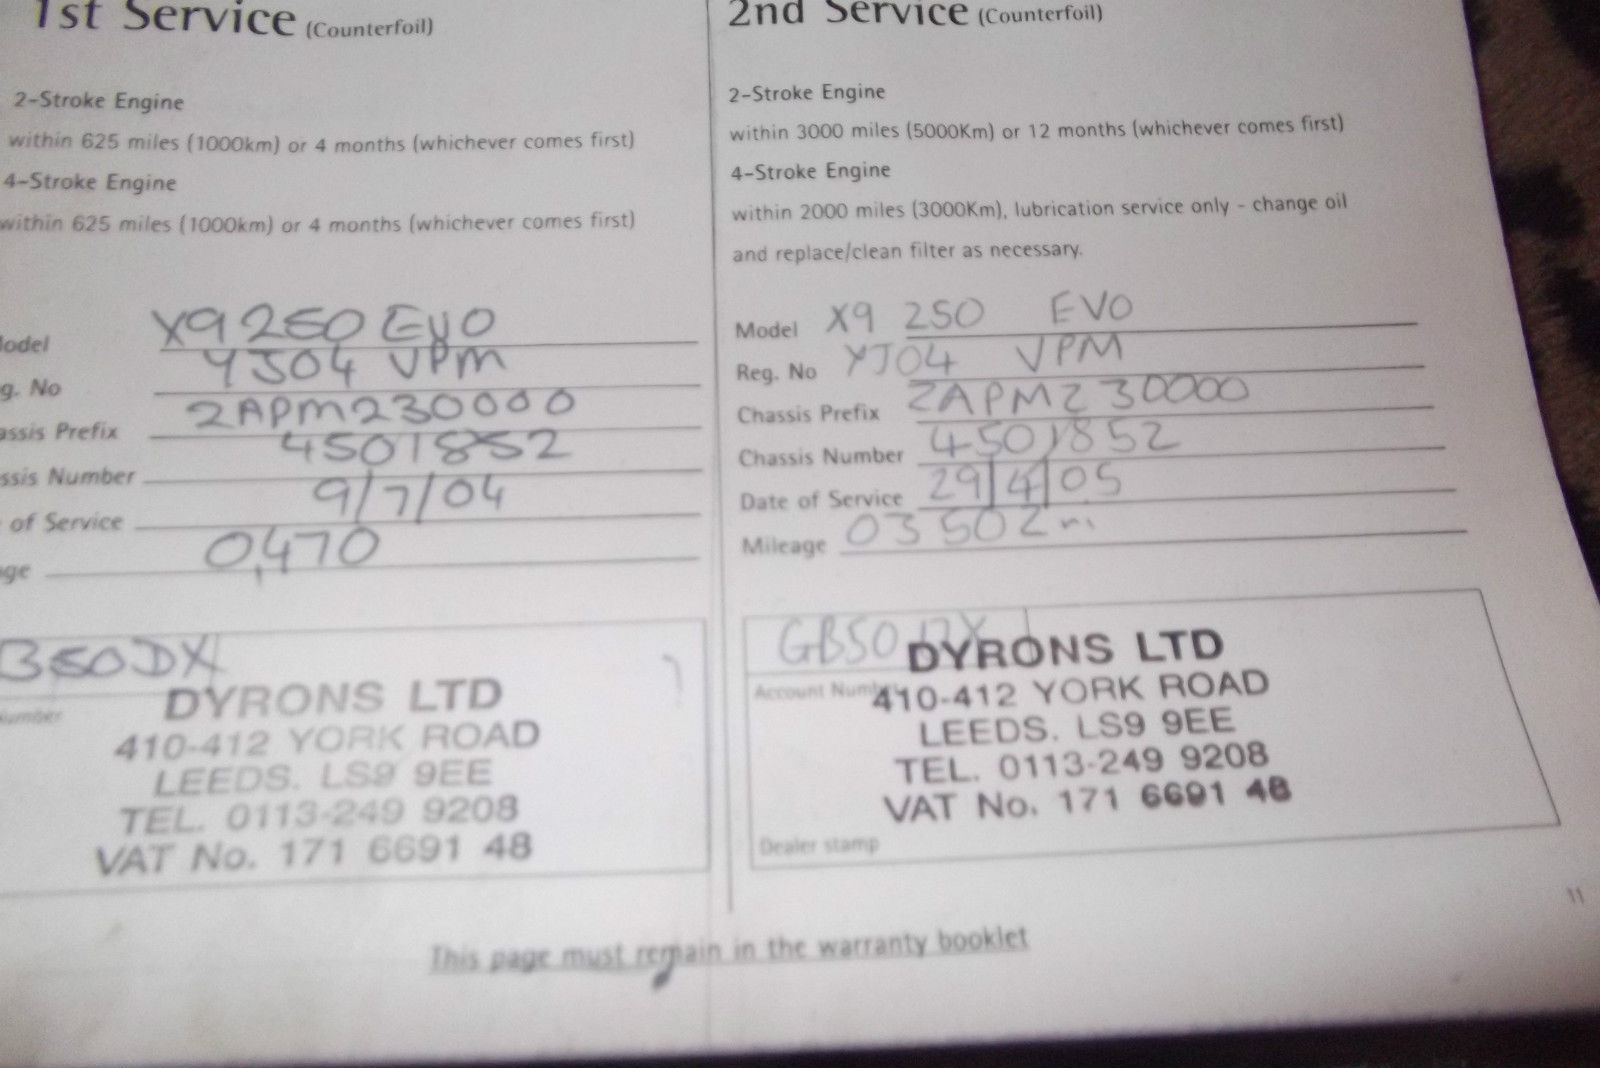 1st Service (Counterfoil)
2-Stroke Engine
within 625 miles (1000km) or 4 months (whichever comes first)
4-Stroke Engine
within 625 miles (1000km) or 4 months (whichever comes first)
odel X9 250 EVO
g. No YJ04 VPM
assis Prefix ZAPM230000
ssis Number 4501852
of Service 9/7/04
ge 0,470
B50DX
umber
DYRONS LTD
410-412 YORK ROAD
LEEDS. LS9 9EE
TEL. 0113-249 9208
VAT No. 171 6691 48
2nd Service (Counterfoil)
2-Stroke Engine
within 3000 miles (5000Km) or 12 months (whichever comes first)
4-Stroke Engine
within 2000 miles (3000Km), lubrication service only - change oil
and replace/clean filter as necessary.
Model X9 250 EVO
Reg. No YJ04 VPM
Chassis Prefix ZAPM230000
Chassis Number 4501852
Date of Service 29/4/05
Mileage 03502 mi
GB50DX
Account Number
DYRONS LTD
410-412 YORK ROAD
LEEDS. LS9 9EE
TEL. 0113-249 9208
VAT No. 171 6691 48
Dealer stamp
11
This page must remain in the warranty booklet